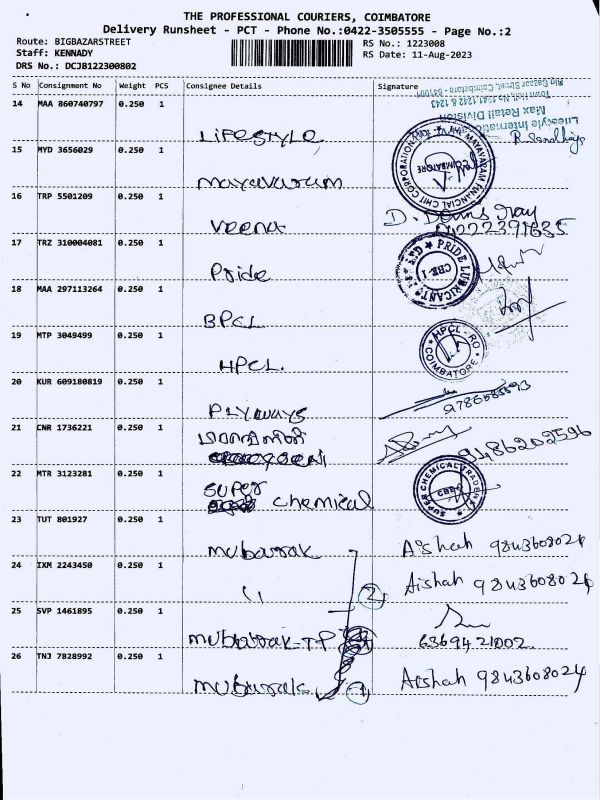 THE PROFESSIONAL COURIERS, COIMBATORE
Delivery Runsheet - PCT - Phone No.:0422-3505555 - Page No.:2
Route: BIGBAZARSTREET RS No.: 1223008
Staff: KENNADY RS Date: 11-Aug-2023
DRS No.: DCJB122300802
S No Consignment No Weight PCS Consignee Details Signature
14 MAA 860740797 0.250 1
LIFESTYLE
Lifestyle International
Max Retail Division
Big Bazaar Street, Coimbatore - 641001
15 MYD 3656029 0.250 1
mayavaram
THE MAYAVARAM FINANCIAL CHIT CORPORATION
COIMBATORE
16 TRP 5501209 0.250 1
veena
D.
17 TRZ 310004081 0.250 1
Pride
PRIDE LUBRICANTS
CBE-1
18 MAA 297113264 0.250 1
BPCL
19 MTP 3049499 0.250 1
HPCL.
HPCL - RO
COIMBATORE
20 KUR 609180819 0.250 1
PLYWAYS
21 CNR 1736221 0.250 1
9486202596
22 MTR 3123281 0.250 1
super
chemical
SUPER CHEMICAL TRADERS
CBE-1
23 TUT 801927 0.250 1
mubarak Aishah 9843608024
24 IXM 2243450 0.250 1
11 2 Aishah 9843608024
25 SVP 1461895 0.250 1
mubarak-TP 6369421002
26 TNJ 7828992 0.250 1
mubarak 1 Aishah 9843608024